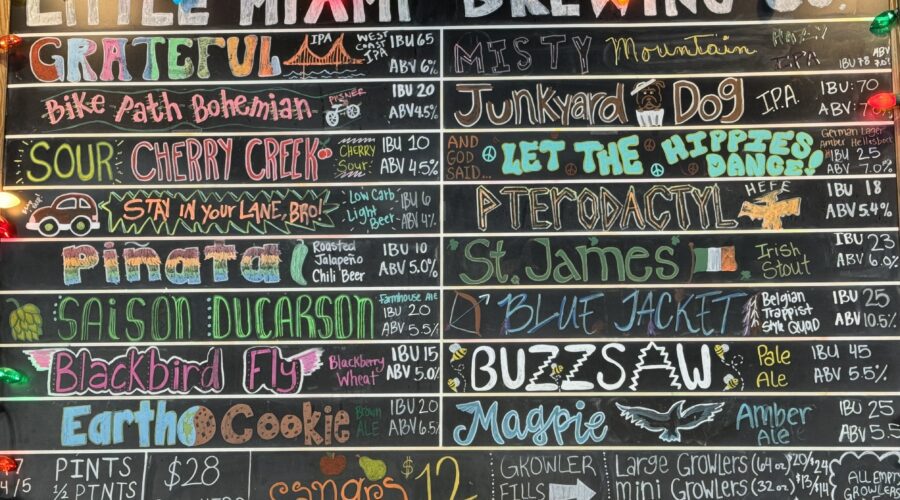 LITTLE MIAMI BREWING CO.
GRATEFUL IPA WEST COAST IPA IBU 65 ABV 6%
Bike Path Bohemian PILSNER IBU 20 ABV 4.5%
SOUR CHERRY CREEK CHERRY SOUR IBU 10 ABV 4.5%
STAY IN YOUR LANE, BRO! Low Carb Light Beer IBU 6 ABV 4%
Piñata Roasted Jalapeño Chili Beer IBU 10 ABV 5.0%
SAISON DUCARSON Farmhouse Ale IBU 20 ABV 5.5%
Blackbird Fly Blackberry Wheat IBU 15 ABV 5.0%
Earth Cookie Brown ALE IBU 20 ABV 6.5%
MISTY Mountain IPA ABV IBU 78
JUNKYARD DOG I.P.A. IBU: 70 ABV:
AND GOD SAID... LET THE HIPPIES DANCE! German Lager Amber IBU 25 ABV 7.0%
PTERODACTYL HEFE IBU 18 ABV 5.4%
St. James Irish Stout IBU 23 ABV 6.0%
BLUE JACKET Belgian Trappist Style QUAD IBU 25 ABV 10.5%
BUZZSAW Pale Ale IBU 45 ABV 5.5%
Magpie Amber Ale IBU 25 ABV 5.5
PINTS
1/2 PINTS
$28
$12
GROWLER FILLS
Large Growlers (64 oz) $20/$24
mini Growlers (32 oz)
ALL EMPTY GROWLERS